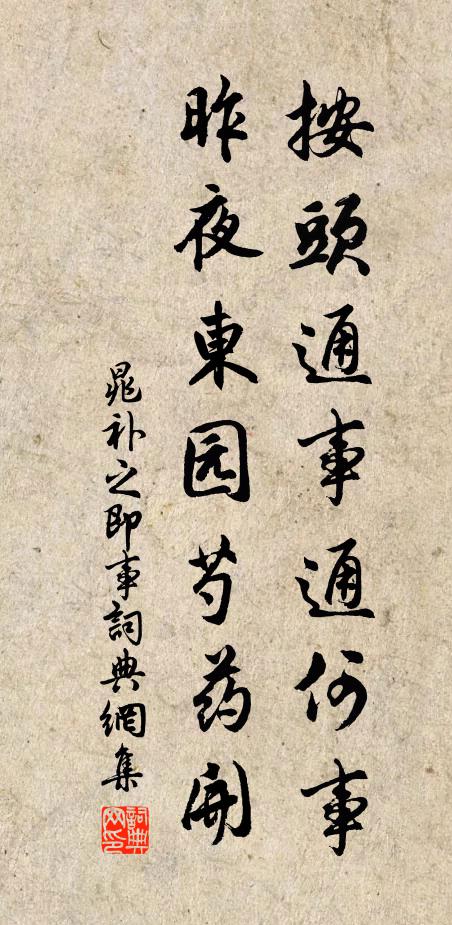 按頭通事通何事
昨夜東园芍药開
晁补之即事詞典網集
詞典网印